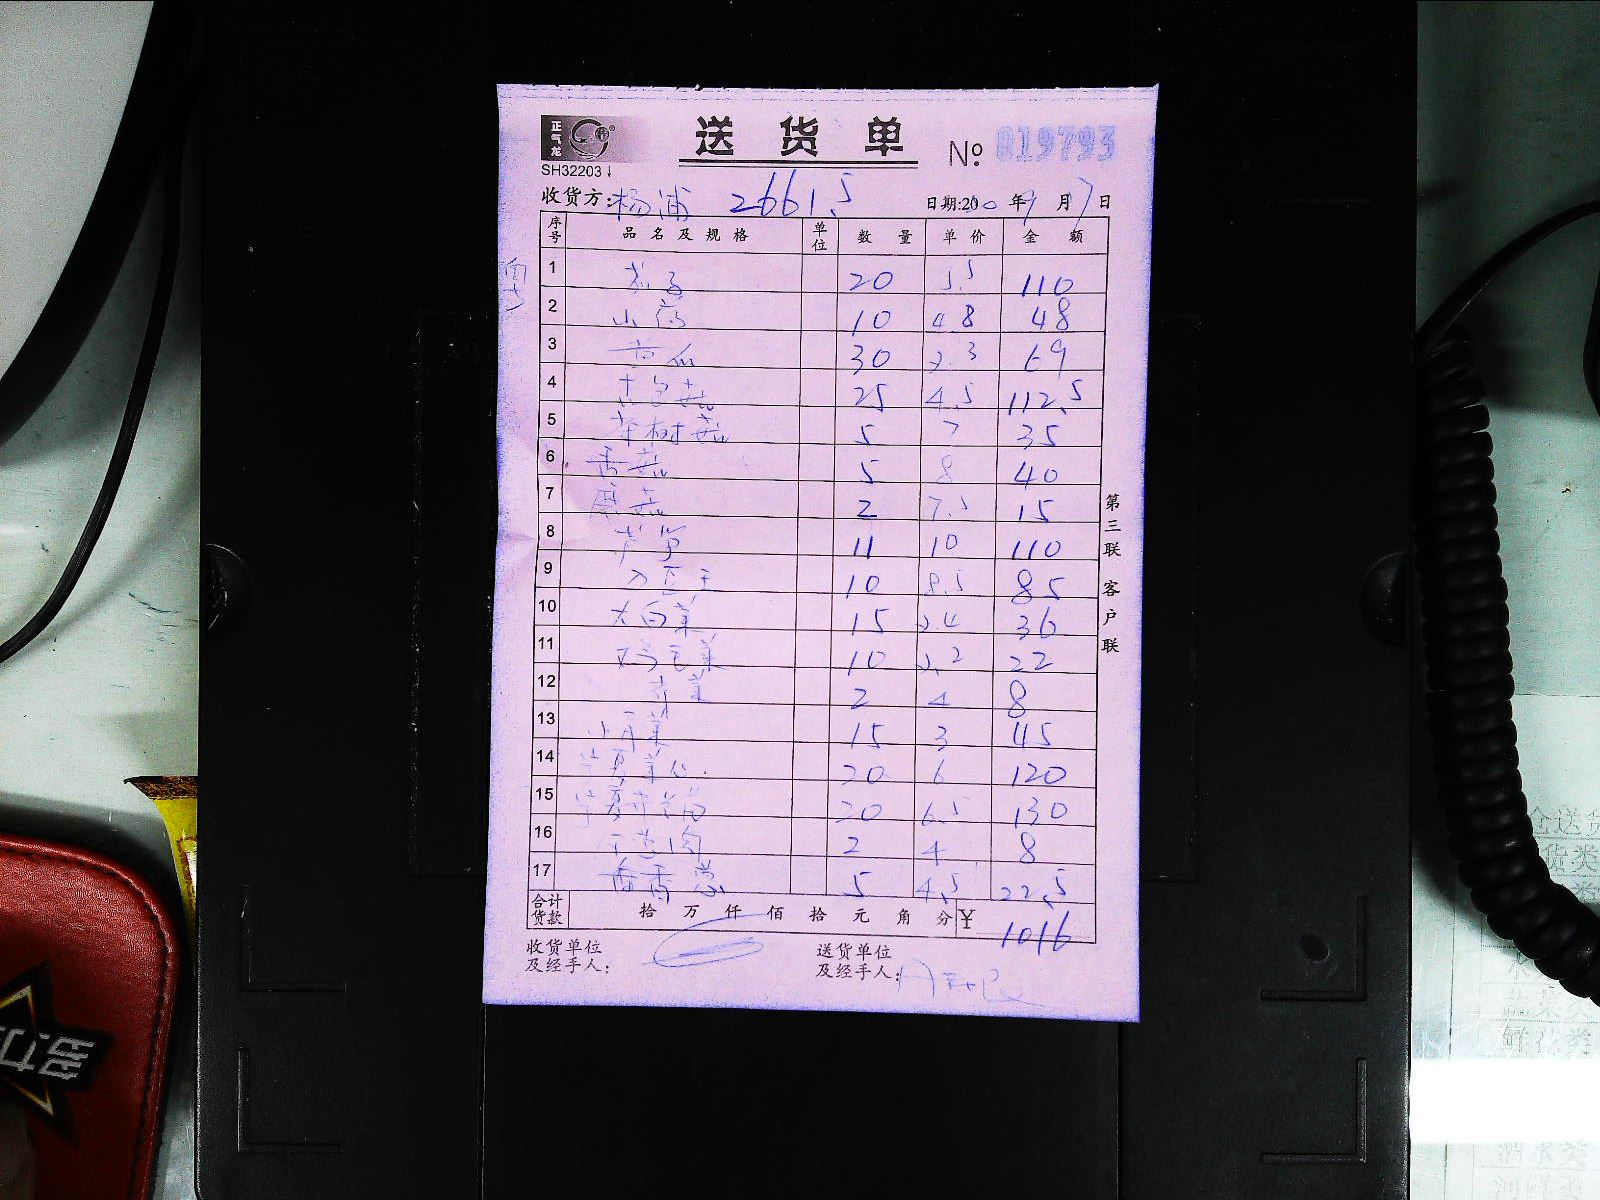 正气龙
送货单
№ 019793
SH32203
收货方: 杨浦 2661.5 日期:20 年9月17日
序号 品名及规格 单位 数量 单价 金额
1 20 5.5 110
2 山药 10 4.8 48
3 黄瓜 30 2.3 69
4 杏鲍菇 25 4.5 112.5
5 茶树菇 5 7 35
6 香菇 5 8 40
7 蘑菇 2 7.5 15
8 芦笋 11 10 110
9 10 8.5 85
10 大白菜 15 2.4 36
11 鸡毛菜 10 2.2 22
12 菜 2 4 8
13 小青菜 15 3 45
14 宁夏菜心 20 6 120
15 宁夏 20 6.5 130
16 2 4 8
17 香葱 5 4.5 22.5
合计货款 拾 万 仟 佰 拾 元 角 分 ¥ 1016
收货单位及经手人:
送货单位及经手人:
第三联 客户联